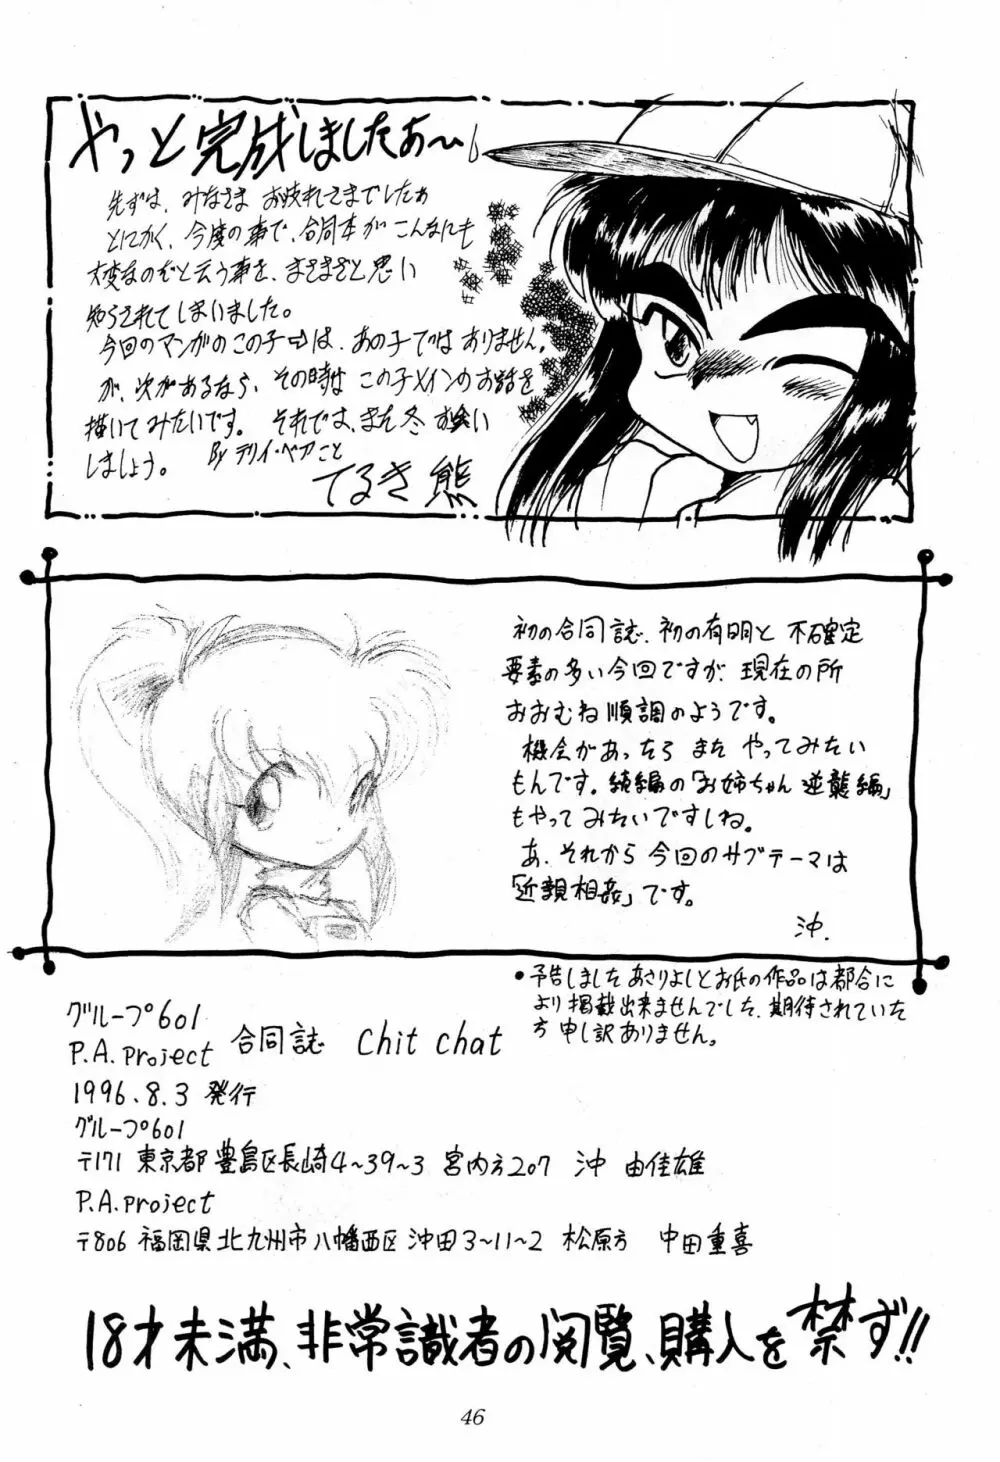 やっと完成しましたぁ〜
先ずは、みなさま お疲れさまでしたぁ
とにかく、今度の事で、合同本がこんなにも
大変なのだと云う事を、まざまざと思い
知らされてしまいました。
今回のマンガのこの子⇨は、あの子ではありません。
が、次があるなら、その時は この子メインのお話を
描いてみたいです。それでは、また冬 お会い
しましょう。 By テリイ・ベアこと
てるき熊
初の合同誌、初の有明と 不確定
要素の多い今回ですが 現在の所
おおむね順調のようです。
機会があったら また やってみたい
もんです。続編の「お姉ちゃん 逆襲編」
もやって みたいですしね。
あ、それから 今回のサブテーマは
「近親相姦」です。
沖.
●予告しました あさりよしとお氏の作品は都合に
より掲載出来ませんでした、期待されていた
方 申し訳ありません。
グループ601
P.A.project 合同誌 Chit chat
1996.8.3 発行
グループ601
〒171 東京都 豊島区長崎4~39~3 宮内方207 沖 由佳雄
P.A.project
〒806 福岡県北九州市八幡西区 沖田3~11~2 松原方 中田重喜
18才未満、非常識者の閲覧、購入を禁ず!!
46